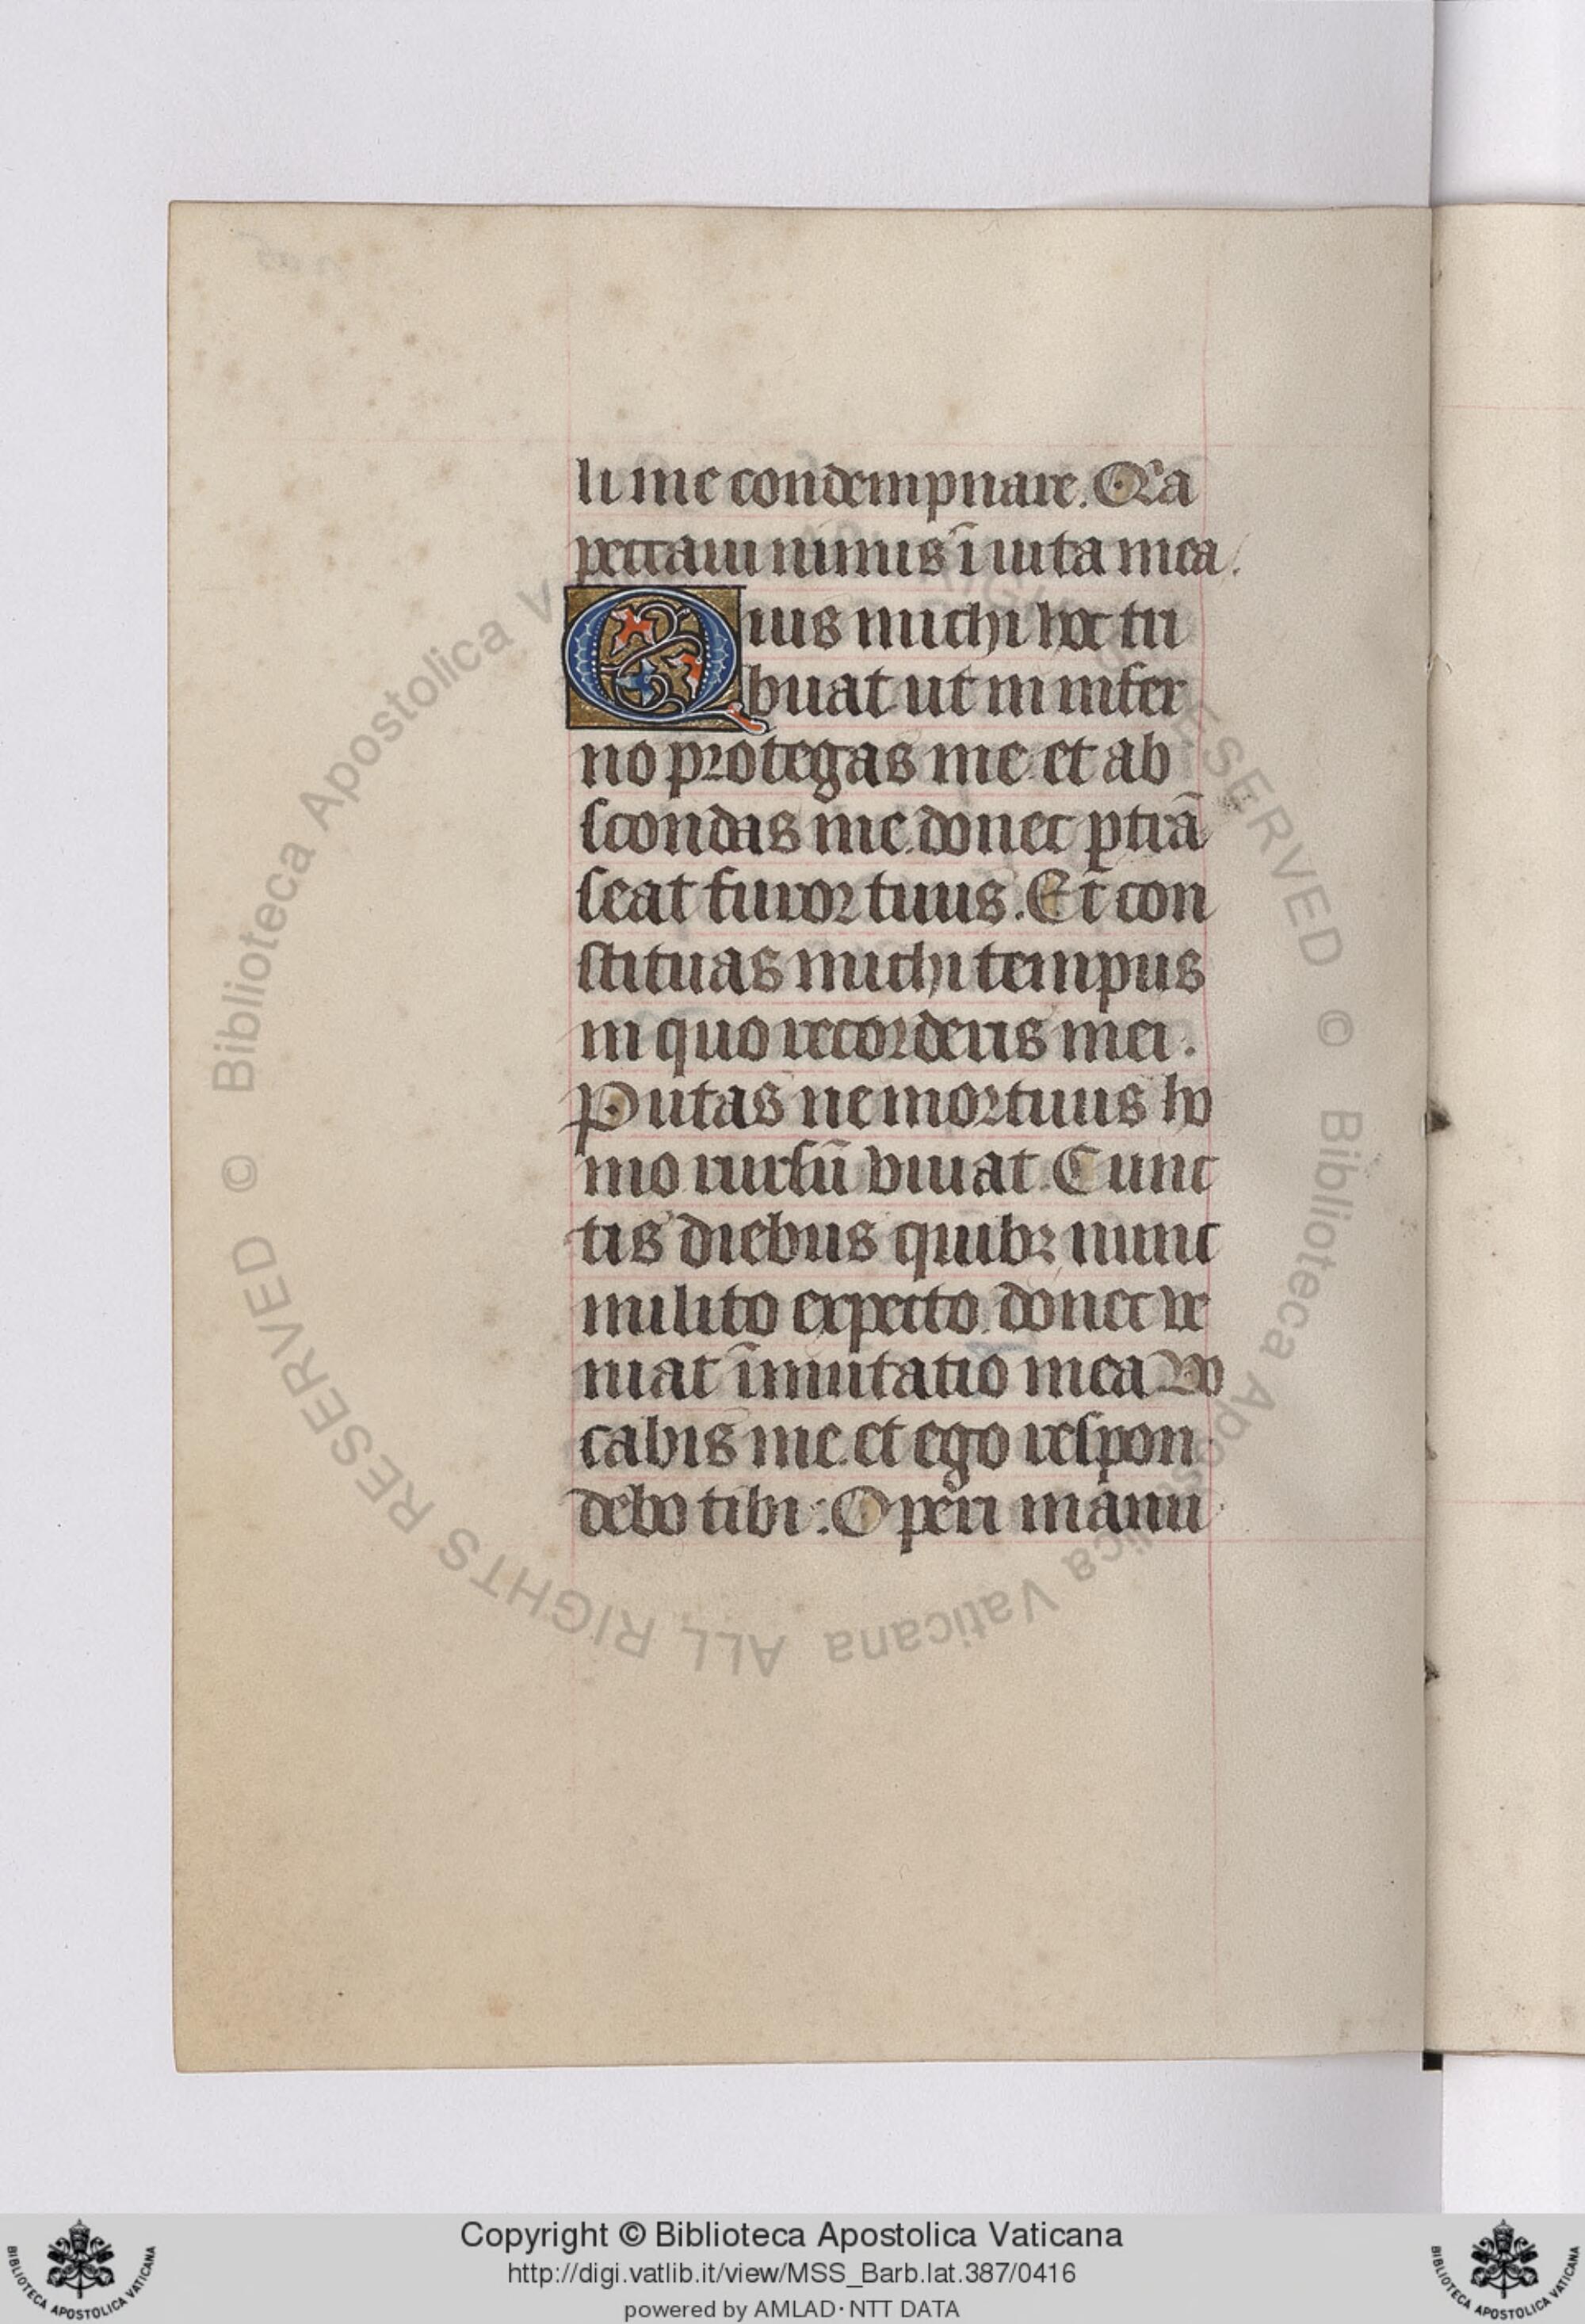 li me condempnare. Qͥa
peccaui nimis ī uita mea.
Quis michi hoc tri
buat ut in infer
no protegas me et ab
scondas me. donec ꝑtrā
seat furor tuus. Et con
stituas michi tempus
in quo recorderis mei.
Putas ne mortuus ho
mo rursū viuat. Cunc
tis diebus quibꝫ nunc
milito expecto. donec ve
niat īmutatio mea Vo
cabis me. et ego respon
debo tibi: Operi manu
© Biblioteca Apostolica Vaticana ALL RIGHTS RESERVED
Copyright © Biblioteca Apostolica Vaticana
http://digi.vatlib.it/view/MSS_Barb.lat.387/0416
powered by AMLAD·NTT DATA
BIBLIOTECA APOSTOLICA VATICANA
BIBLIOTECA APOSTOLICA VATICANA